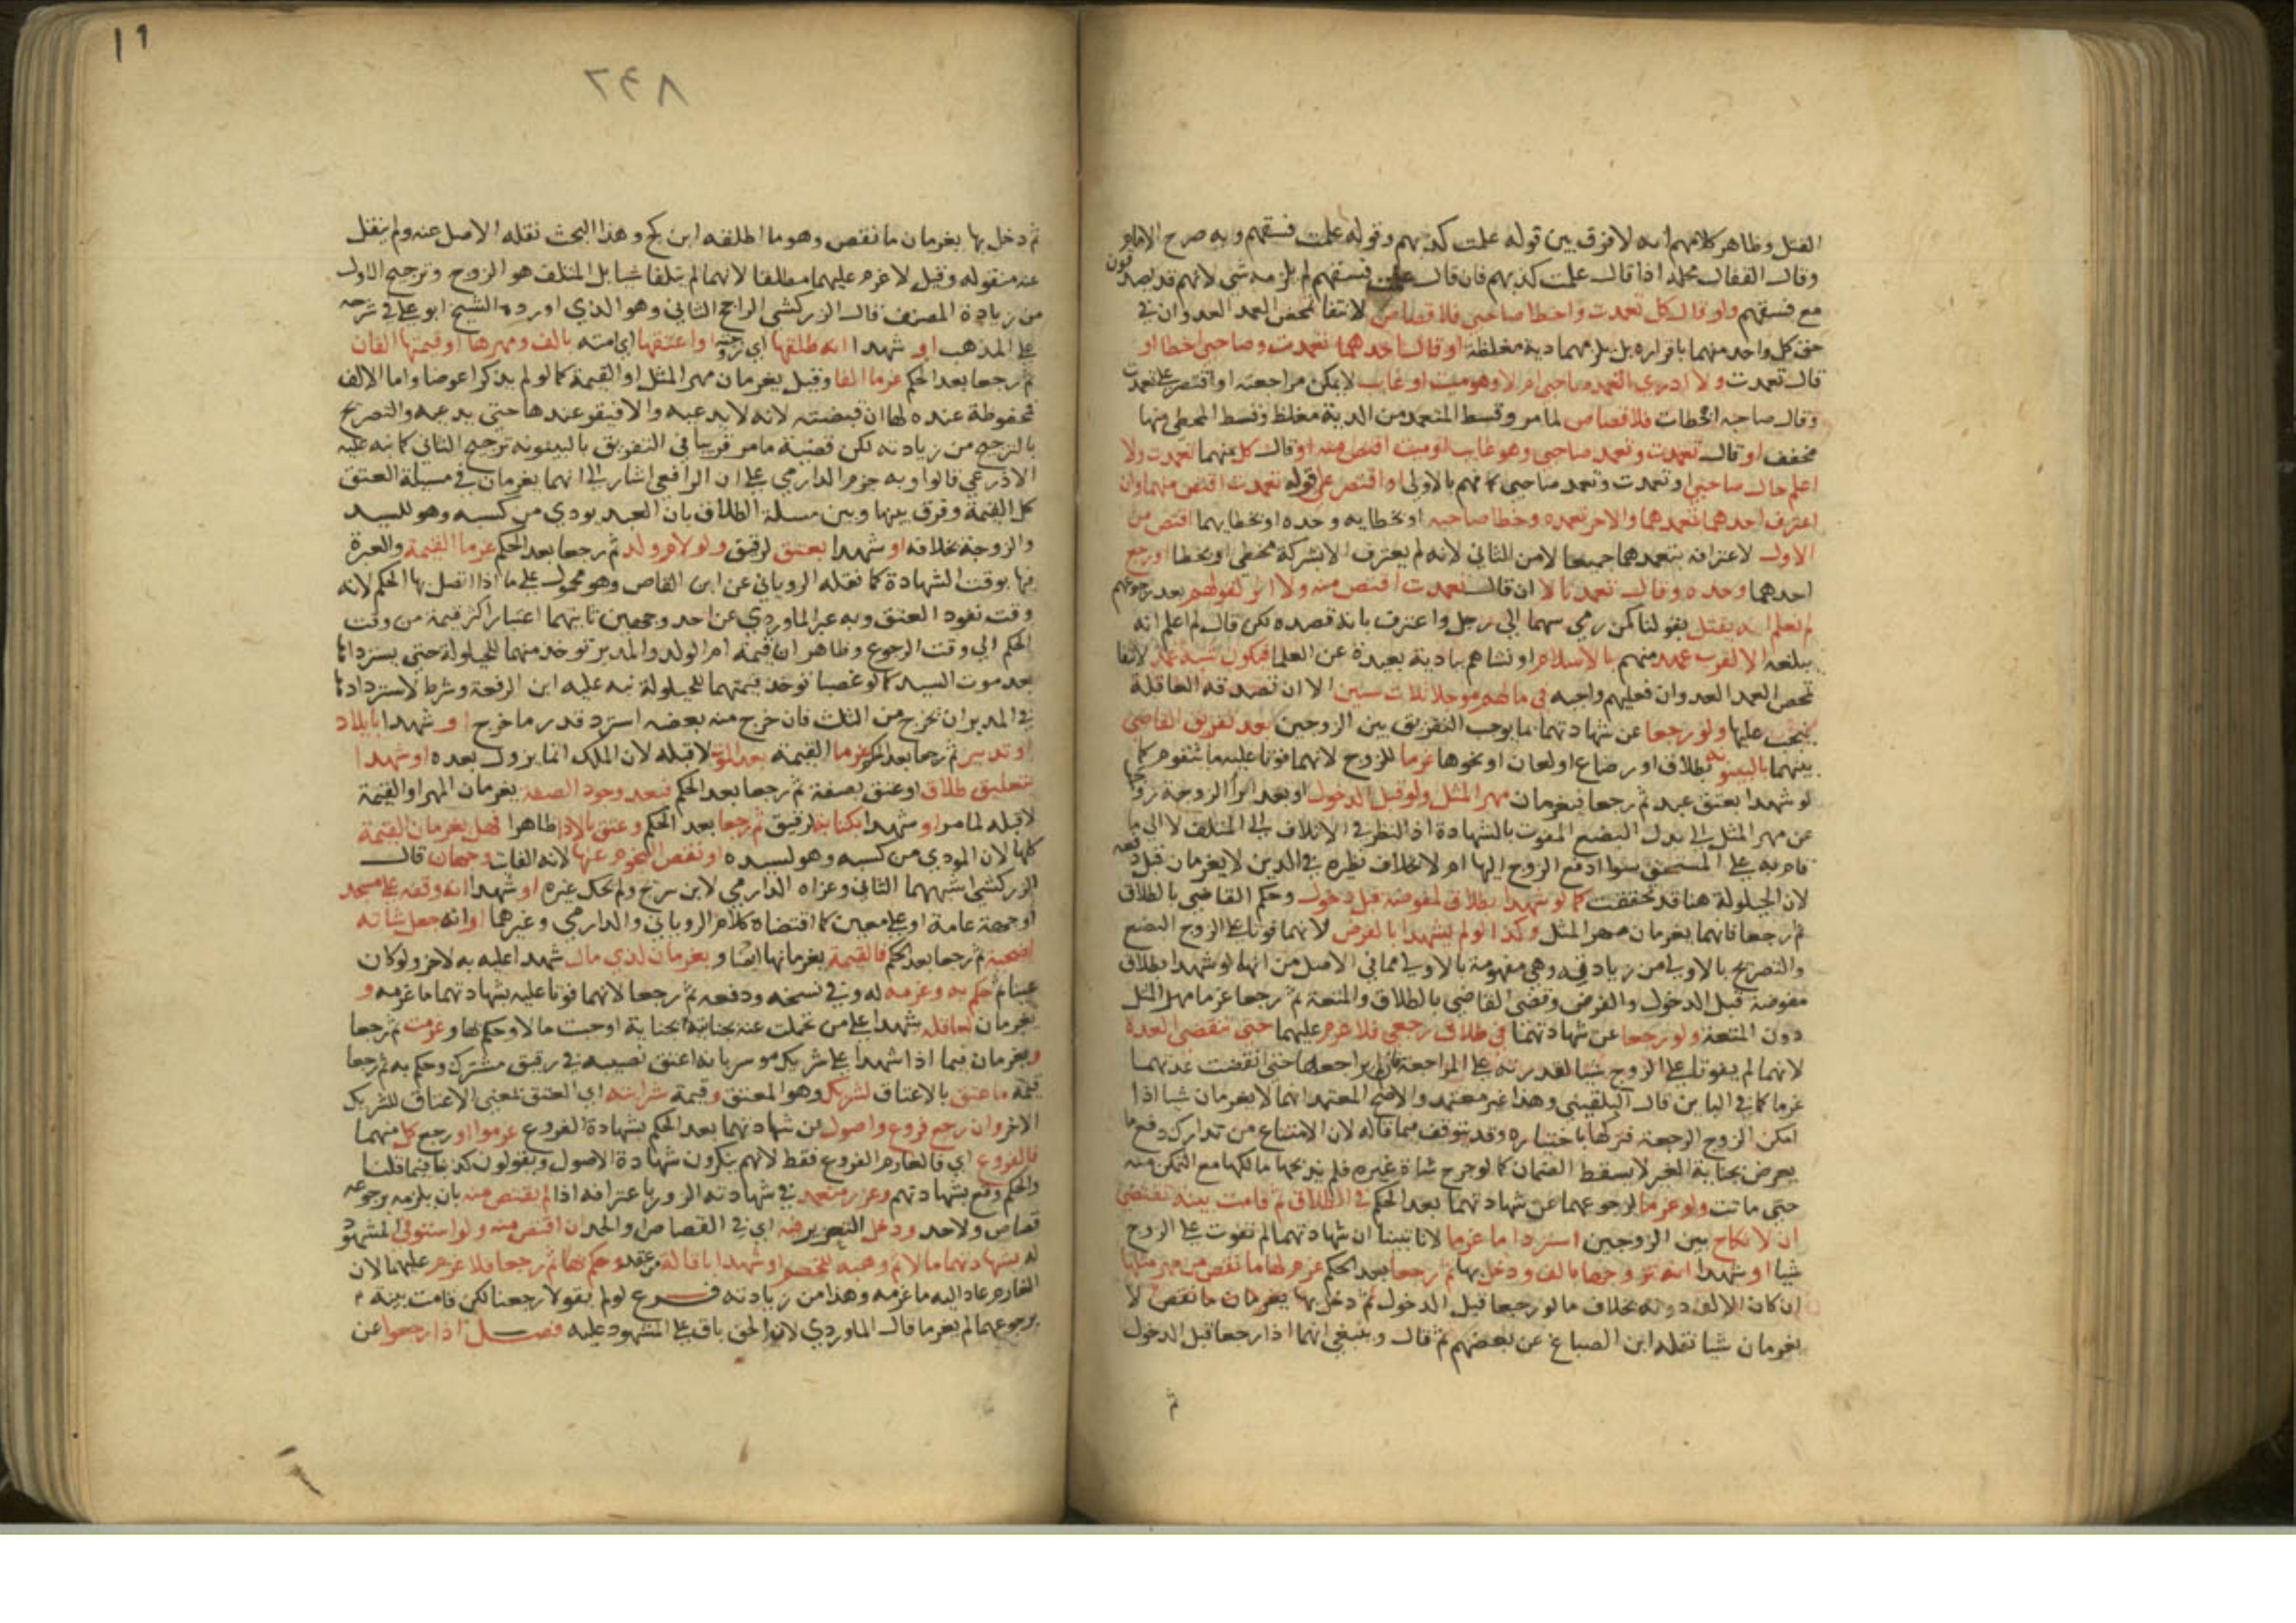 القتل وظاهر كلامهم انه لا فرق بين قوله علمت كذبهم وقوله علمت فسقهم وبه صرح الامام
وقال القفال محله اذا قال علمت كذبهم فان قال علمت فسقهم لم يلزمه شي لانهم قد يصدقون
مع فسقهم ولو قال كل تعمدت واخطا صاحبي فلا قصاص لانتفا تمحض العمد العدوان في
حق كل واحد منهما باقراره بل يلزمهما دية مغلظة او قال احدهما تعمدت وصاحبي اخطا او
قال تعمدت ولا ادري اتعمد صاحبي ام لا وهو ميت او غايب لا يمكن مراجعته او اقتصر على تعمدت
وقال صاحبه اخطات فلا قصاص لما مر وقسط المتعمد من الدية مغلظ وقسط المخطي منها
مخفف او قال تعمدت وتعمد صاحبي وهو غايب او ميت اقتص منه او قال كل منهما تعمدت ولا
اعلم حال صاحبي او تعمدت وتعمد صاحبي كما فهم بالاولى او اقتصر على قوله تعمدت اقتص منهما وان
اعترف احدهما بتعمدهما والاخر بتعمده وخطا صاحبه او بخطايه وحده او بخطايهما اقتص من
الاول لاعترافه بتعمدهما جميعا لا من الثاني لانه لم يعترف الا بشركة مخطي او بخطا او رجع
احدهما وحده وقال تعمدنا لا ان قال تعمدت اقتص منه ولا اثر لقولهم بعد رجوعهم
لم نعلم انه يقتل بقولنا كمن رمى سهما الى رجل واعترف بانه قصده لكن قال لم اعلم انه
يبلغه الا لقرب عهد منهم بالاسلام او نشاهم ببادية بعيدة عن العلما فيكون شبه عمد لانتفا
تمحض العمد العدوان فعليهم واجبه في مالهم موجلا ثلاث سنين الا ان تصدقه العاقلة
فيجب عليها ولو رجعا عن شهادتهما بما يوجب التفريق بين الزوجين بعد تفريق القاضي
بينهما بالبينونة بطلاق او رضاع او لعان او نحوها غرما للزوج لانهما فوتا عليه ما يتقوم كما
لو شهدا بعتق عبد ثم رجعا فيغرمان مهر المثل ولو قبل الدخول او بعد ابرا الزوجة زوجها
عن مهر المثل الى بدل البضع المفوت بالشهادة اذ النظر في الاتلاف الى المتلف لا الى ما
قام به على المستحق سوا ادفع الزوج اليها ام لا بخلاف نظيره في الدين لا يغرمان قبل دفعه
لان الحيلولة هنا قد تحققت كما لو شهدا بطلاق لمفوضة قبل دخول وحكم القاضي بالطلاق
ثم رجعا فانهما يغرمان مهر المثل وكذا لو لم يشهدا بالفرض لانهما فوتا على الزوج البضع
والتصريح بالاولى من زيادته وهي مفهومة بالاولى مما في الاصل من انهما لو شهدا بطلاق
مفوضة قبل الدخول والفرض وقضى القاضي بالطلاق والمتعة ثم رجعا غرما مهر المثل
دون المتعة ولو رجعا عن شهادتهما في طلاق رجعي فلا غرم عليهما حتى تنقضي العدة
لانهما لم يفوتا على الزوج شيا لقدرته على المراجعة فان لم يراجعها حتى انقضت عدتهما
غرما كما في الباين قال البلقيني وهذا غير معتمد والاصح المعتمد انهما لا يغرمان شيا اذا
امكن الزوج الرجعة فتركها باختياره وقد يتوقف فيما قاله لان الامتناع من تدارك دفع ما
يعرض بجناية الغير لا يسقط الضمان كما لو جرح شاة غيره فلم يذبحها مالكها مع التمكن منه
حتى ماتت ولو غرما لرجوعهما عن شهادتهما بعد الحكم في الطلاق ثم قامت بينة تقتضي
ان لا نكاح بين الزوجين استردا ما غرما لانا تبينا ان شهادتهما لم تفوت على الزوج
شيا او شهدا انه تزوجها بالف ودخل بها ثم رجعا بعد الحكم غرم لها ما نقص من مهر مثلها
ان كان الالف دونه بخلاف ما لو رجعا قبل الدخول ثم دخل بها يغرمان ما نقص لا
يغرمان شيا نقله ابن الصباغ عن بعضهم ثم قال وينبغي انهما اذا رجعا قبل الدخول
ثم
٢٤٨
١٩
ثم دخل بها يغرمان ما نقص وهو ما اطلقه ابن كج وهذا البحث نقله الاصل عنه ولم ينقل
عنه منقوله وقيل لا غرم عليهما مطلقا لانهما لم يتلفا شيا بل المتلف هو الزوج وترجيح الاول
من زيادة المصنف قال الزركشي الراجح الثاني وهو الذي اورده الشيخ ابو علي في شرحه
على المذهب او شهدا انه طلقها اي زوجته او اعتقها اي امته بالف ومهرها او قيمتها الفان
ثم رجعا بعد الحكم غرما الفا وقيل يغرمان مهر المثل او القيمة كما لو لم يذكرا عوضا واما الالف
محفوظة عنده لها ان قبضته لانه لا يدعيه والا فيبقى عندها حتى يدعيه والتصريح
بالترجيح من زيادته لكن قضية ما مر قريبا في التفريق بالبينونة ترجيح الثاني كما نبه عليه
الاذرعي قالوا وبه جزم الدارمي على ان الرافعي اشار الى انهما يغرمان في مسيلة العتق
كل القيمة وفرق بينها وبين مسيلة الطلاق بان العبد يودي من كسبه وهو للسيد
والزوجة بخلافه او شهدا بعتق لرقيق ولو لام ولد ثم رجعا بعد الحكم غرما القيمة والعبرة
فيها بوقت الشهادة كما نقله الروياني عن ابن القاص وهو محمول على ما اذا اتصل بها الحكم لانه
وقت نفوذ العتق وبه عبر الماوردي عن احد وجهين ثانيهما اعتبار اكثر قيمة من وقت
الحكم الى وقت الرجوع وظاهر ان قيمة ام الولد والمدبر توخذ منهما للحيلولة حتى يسترداها
بعد موت السيد كما لو غصبا توخذ قيمتهما للحيلولة نبه عليه ابن الرفعة وشرط لاستردادها
في المدبر ان يخرج من الثلث فان خرج منه بعضه استرد قدر ما خرج او شهدا بايلاد
او تدبير ثم رجعا بعد الحكم غرما القيمة بعد الموت لا قبله لان الملك انما يزول بعده او شهدا
بتعليق طلاق او عتق بصفة ثم رجعا بعد الحكم فبعد وجود الصفة يغرمان المهر او القيمة
لا قبله لما مر او شهدا بكتابة لرقيق ثم رجعا بعد الحكم وعتق بالادا ظاهرا فهل يغرمان القيمة
كلها لان المودى من كسبه وهو لسيده او نقص النجوم عنها لانه الفايت وجهان قال
الزركشي اشبههما الثاني وعزاه الدارمي لابن سريج ولم يحك غيره او شهدا انه وقفه على مسجد
او جهة عامة او على معين كما اقتضاه كلام الروياني والدارمي وغيرهما او انه جعل شاته
اضحية ثم رجعا بعد الحكم فالقيمة يغرمانها ايضا ويغرمان لذي مال شهدا عليه به لاخر ولو كان
عينا ثم حكم به وغرمه له وفي نسخة ودفعه ثم رجعا لانهما فوتا عليه بشهادتهما ما غرمه و
يغرمان لعاقلة شهدا على من تحملت عنه بجناية لجناية اوجبت مالا وحكم بها وغرمت ثم رجعا
ويغرمان فيما اذا شهدا على شريك موسر بانه اعتق نصيبه في رقيق مشترك وحكم به ثم رجعا
قيمة ما عتق بالاعتاق لشريك وهو المعتق وقيمة سرايته اي العتق لمعنى الاعتاق للشريك
الاخر وان رجع فروع واصول عن شهادتهما بعد الحكم بشهادة الفروع غرموا او رجع كل منهما
فالفروع اي فالغارم الفروع فقط لانهم ينكرون شهادة الاصول ويقولون كذبنا فيما قلنا
والحكم وقع بشهادتهم وعزر متعمد في شهادته الزور باعترافه اذا لم يقتص منه بان يلزمه برجوعه
قصاص ولا حد ودخل التعزير فيه اي في القصاص والحد ان اقتص منه ولو استوفى المشهود
له بشهادتهما مالا ثم وهبه للخصم او شهدا باقالة من عقد وحكم بها ثم رجعا فلا غرم عليهما لان
الغارم عاد اليه ما غرمه وهذا من زيادته فرع لو لم يقولا رجعنا لكن قامت بينة
برجوعهما لم يغرما قال الماوردي لان الحق باق على المشهود عليه فصل اذا رجعوا عن